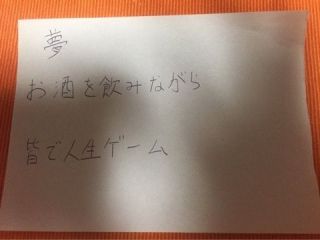 夢
お酒を飲みながら
皆で人生ゲーム